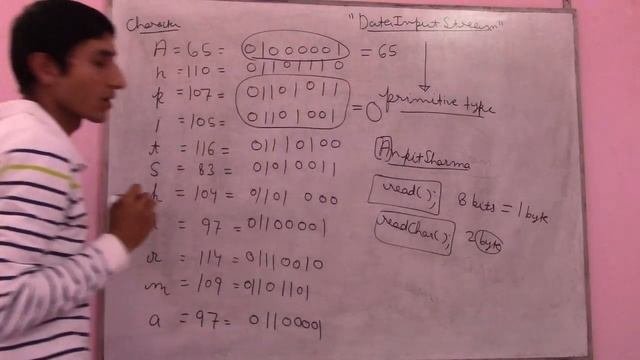 Character
"DataInputStream"
A = 65 = 01000001 = 65
n = 110 = 01101110
k = 107 = 01101011
i = 105 = 01101001
= 0
t = 116 = 01110100
S = 83 = 01010011
h = 104 = 01101 000
= 97 = 01100001
r = 114 = 01110010
m = 109 = 01101101
a = 97 = 01100001
primitive type
AnkitSharma
read();
8 bits = 1 byte
readChar();
2 byte